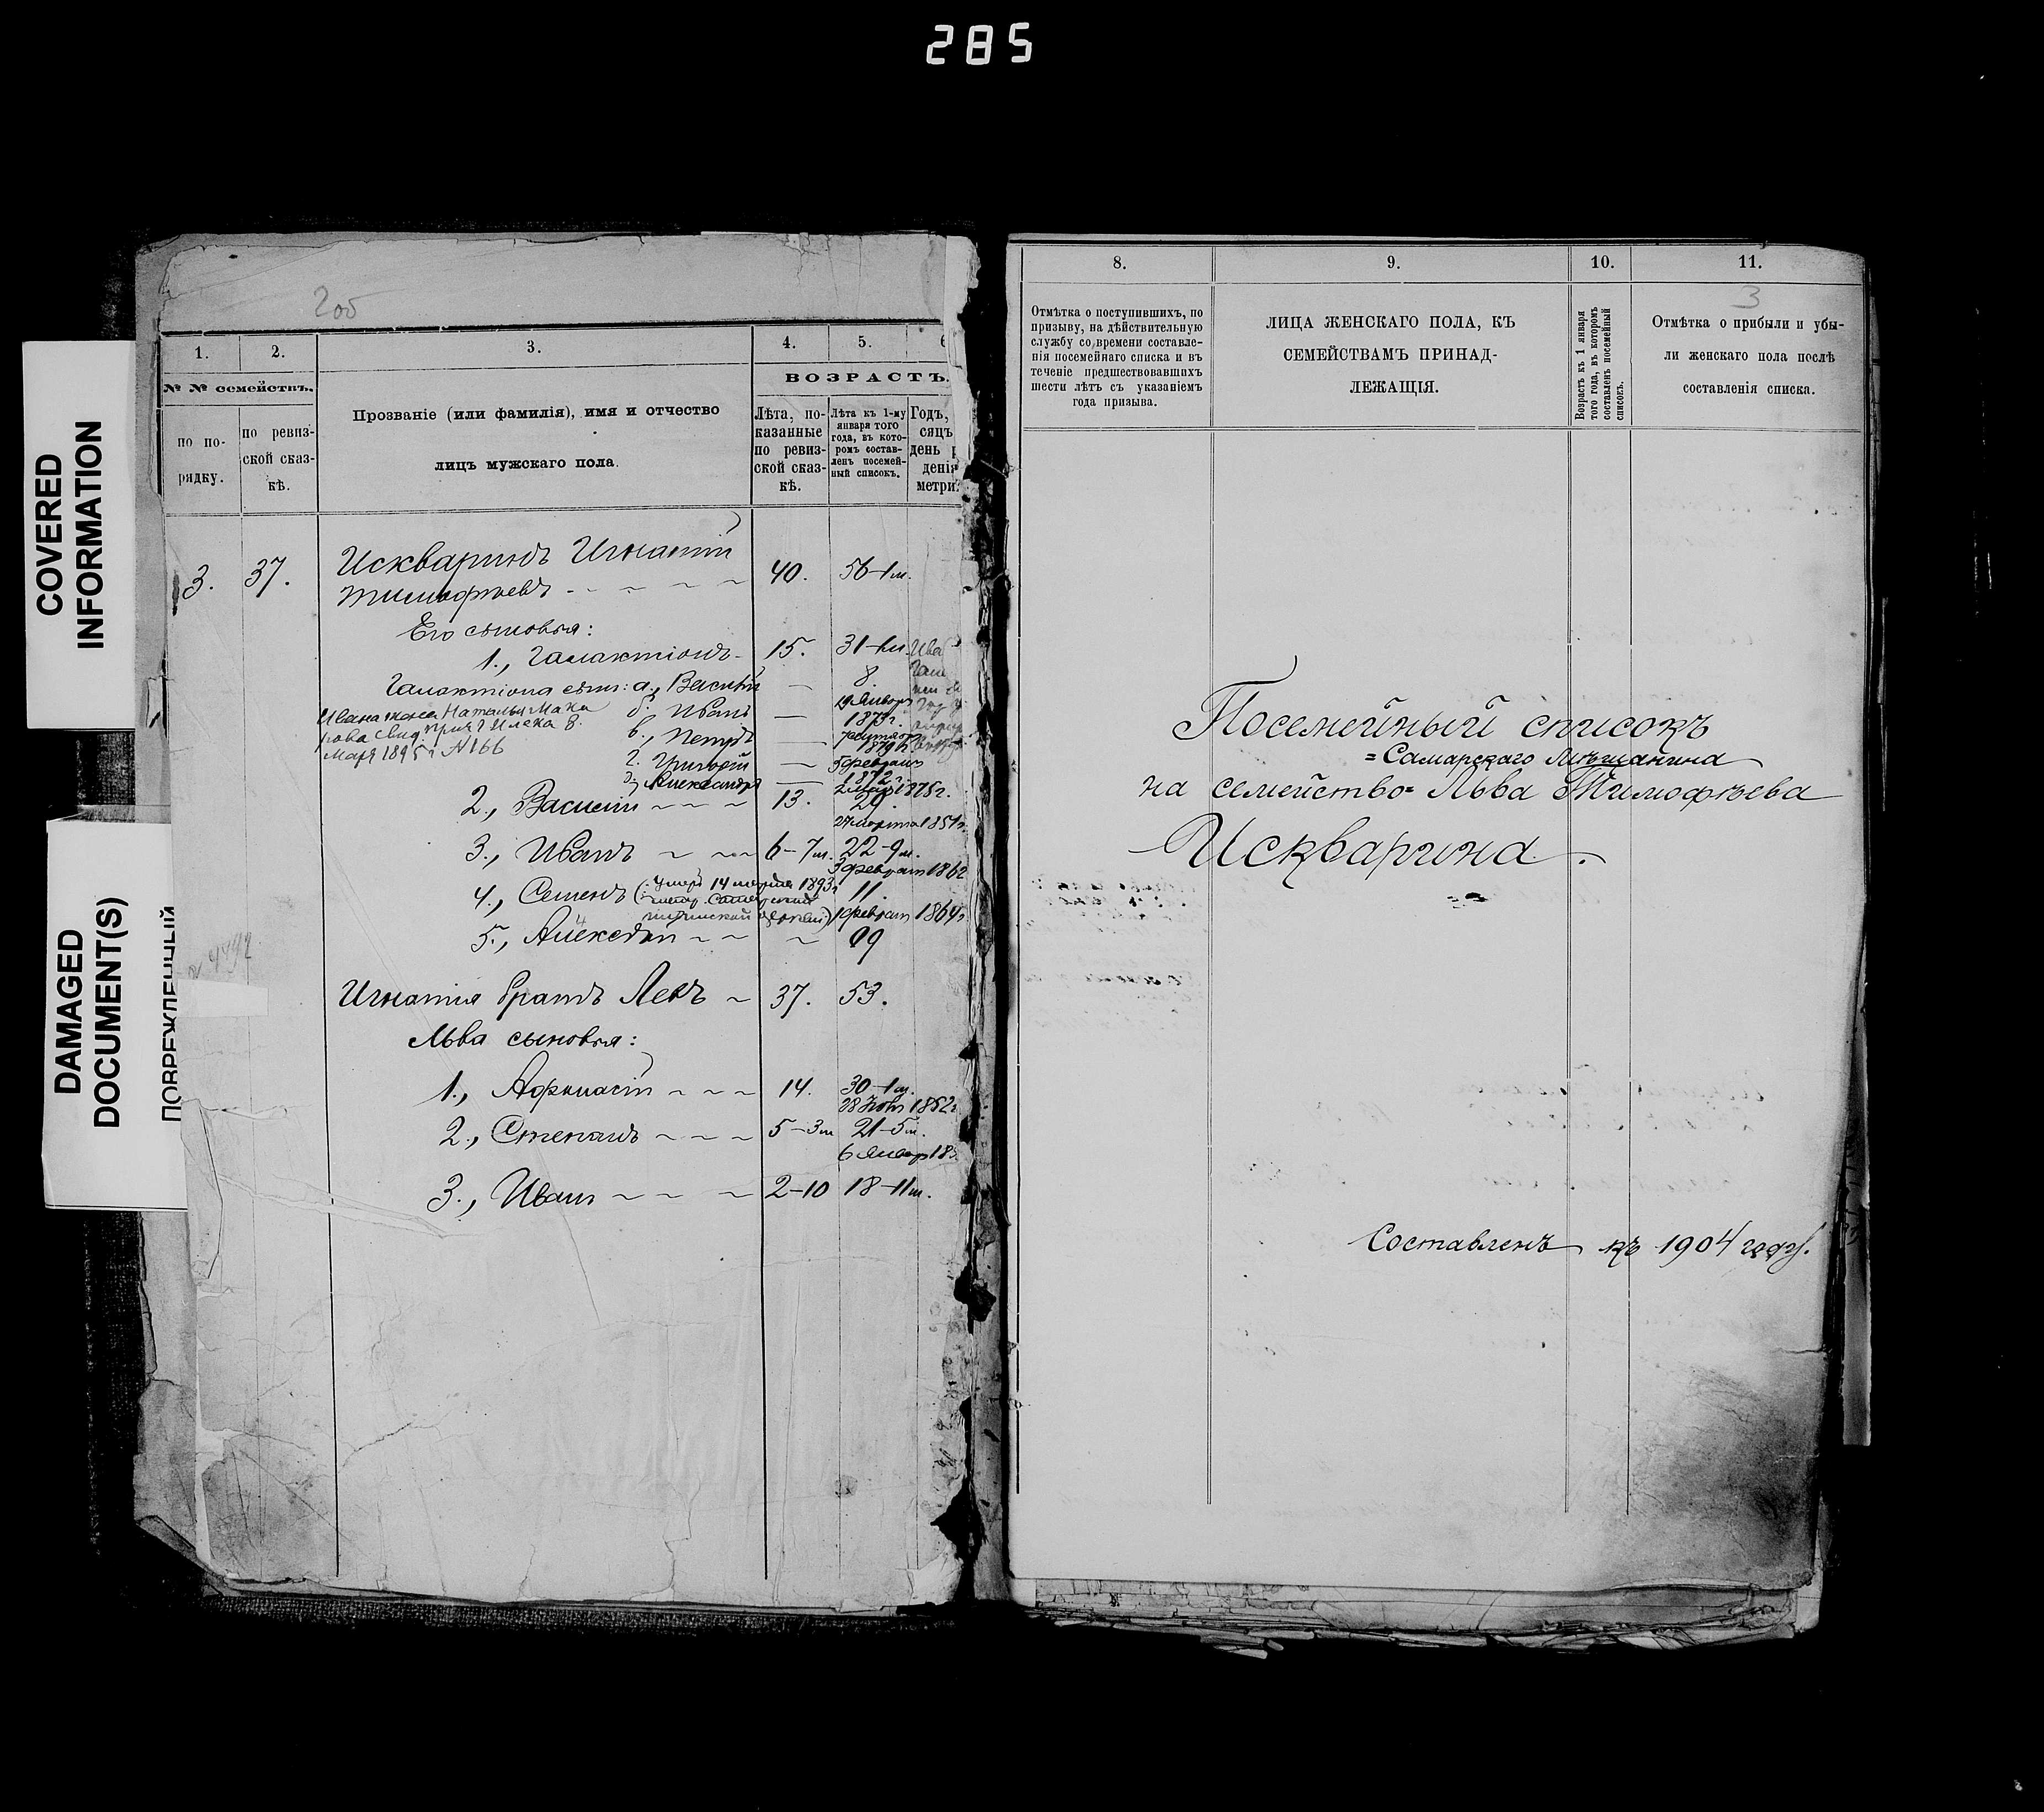 285
COVERED
INFORMATION
DAMAGED
DOCUMENT(S)
ПОВРЕЖДЕННЫЙ
2об
1.
2.
3.
4.
5.
№ № семействъ.
ВОЗРАСТЪ.
по по-
рядку.
по ревиз-
ской сказ-
кѣ.
Прозваніе (или фамилія), имя и отчество
лицъ мужскаго пола.
Лѣта, по-
казанные
по ревиз-
ской сказ-
кѣ.
Лѣта къ 1-му
января того
года, въ кото-
ромъ состав-
ленъ посемей-
ный списокъ.
Годъ,
сяцъ
день
денія
метри
3. 37. Искваринъ Игнатій
Тимофѣевъ 40. 56-1м.
Его сыновья:
1., Галактіонъ 15. 31-
Галактіона сын: а., Василій — 8.
Ивана жена Наталья Мака
рова Свид. прич Илека 8.
Мар 1895 г №166
б. Иванъ — 29 Января
1873 г.
в., Петръ —
1879 г.
г. Григорій — 5 февраля
1872 г.
д., Александръ — 2 мар 1875 г.
2., Василій 13. 29.
27 марта 1851 г.
3., Иванъ 6-7м. 22-9м.
3 февраля 1862
4., Семенъ (умеръ 14 марта 1893 г 11.
февраля 1864 г.
5., Алексѣй 99
Игнатія братъ Левъ 37. 53.
Льва сыновья:
1., Афанасій 14. 30-1м.
28 Ноя 1852 г.
2., Степанъ 5-3м 21-5м.
6 Январ 18
3., Иванъ 2-10 18-11м.
8.
9.
10.
11.
3
Отмѣтка о поступившихъ, по
призыву, на дѣйствительную
службу со времени составле-
нія посемейнаго списка и въ
теченіе предшествовавшихъ
шести лѣтъ съ указаніемъ
года призыва.
ЛИЦА ЖЕНСКАГО ПОЛА, КЪ
СЕМЕЙСТВАМЪ ПРИНАД-
ЛЕЖАЩІЯ.
Возрастъ къ 1 января
того года, въ которомъ
составленъ посемейный
списокъ.
Отмѣтка о прибыли и убы-
ли женскаго пола послѣ
составленія списка.
Посемейный списокъ
=Самарскаго Мѣщанина
на семейство= Льва Тимофѣева
Искварина.
Составленъ къ 1904 году.